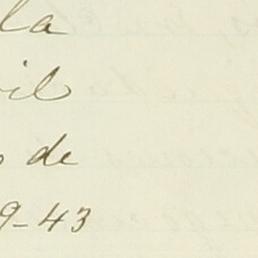 la
il
de
9-43